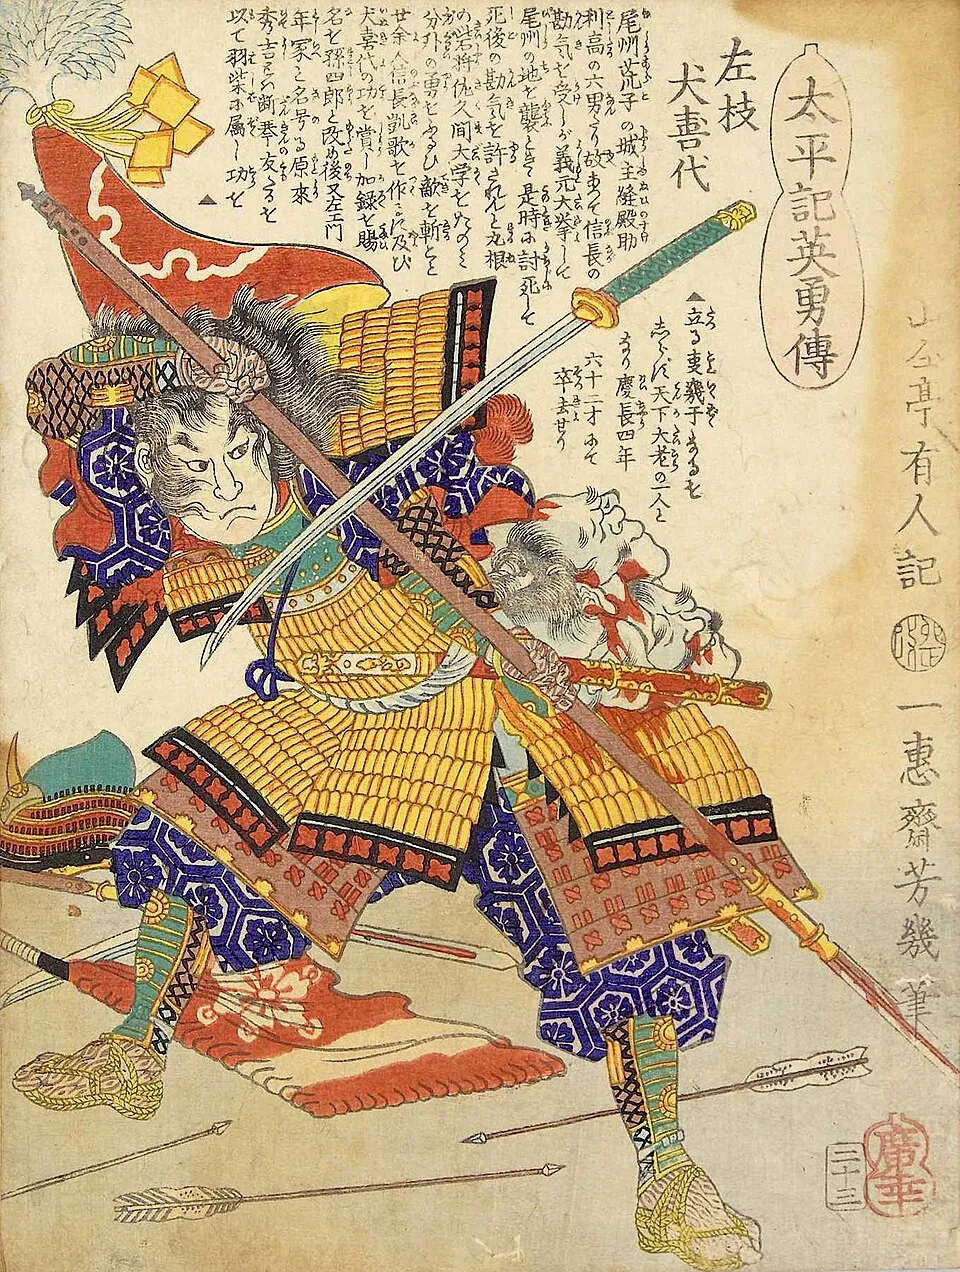 太平記英勇傳
左枝
犬喜代
尾州荒子の城主縫殿助
利高の六男なり故あつて信長の
勘気を受しが義元大挙して
尾州の地を襲とき是時に討死して
死後の勘気を許されんと丸根
の砦将佐久間大学をたのミ
分外の勇をふるひ敵を斬こと
廿余人信長凱歌を作に及び
犬喜代の功を賞し加録を賜
名を孫四郎と改め後又左エ門
年家と名号る原來
秀吉とハ断琴の友たるを
以て羽柴に属し功を
▲
▲
立る事幾干なるを
しらず天下大老の一人と
なり慶長四年
六十二才にて
卒去せり
山々亭有人記
一惠齋芳幾筆
廣幸